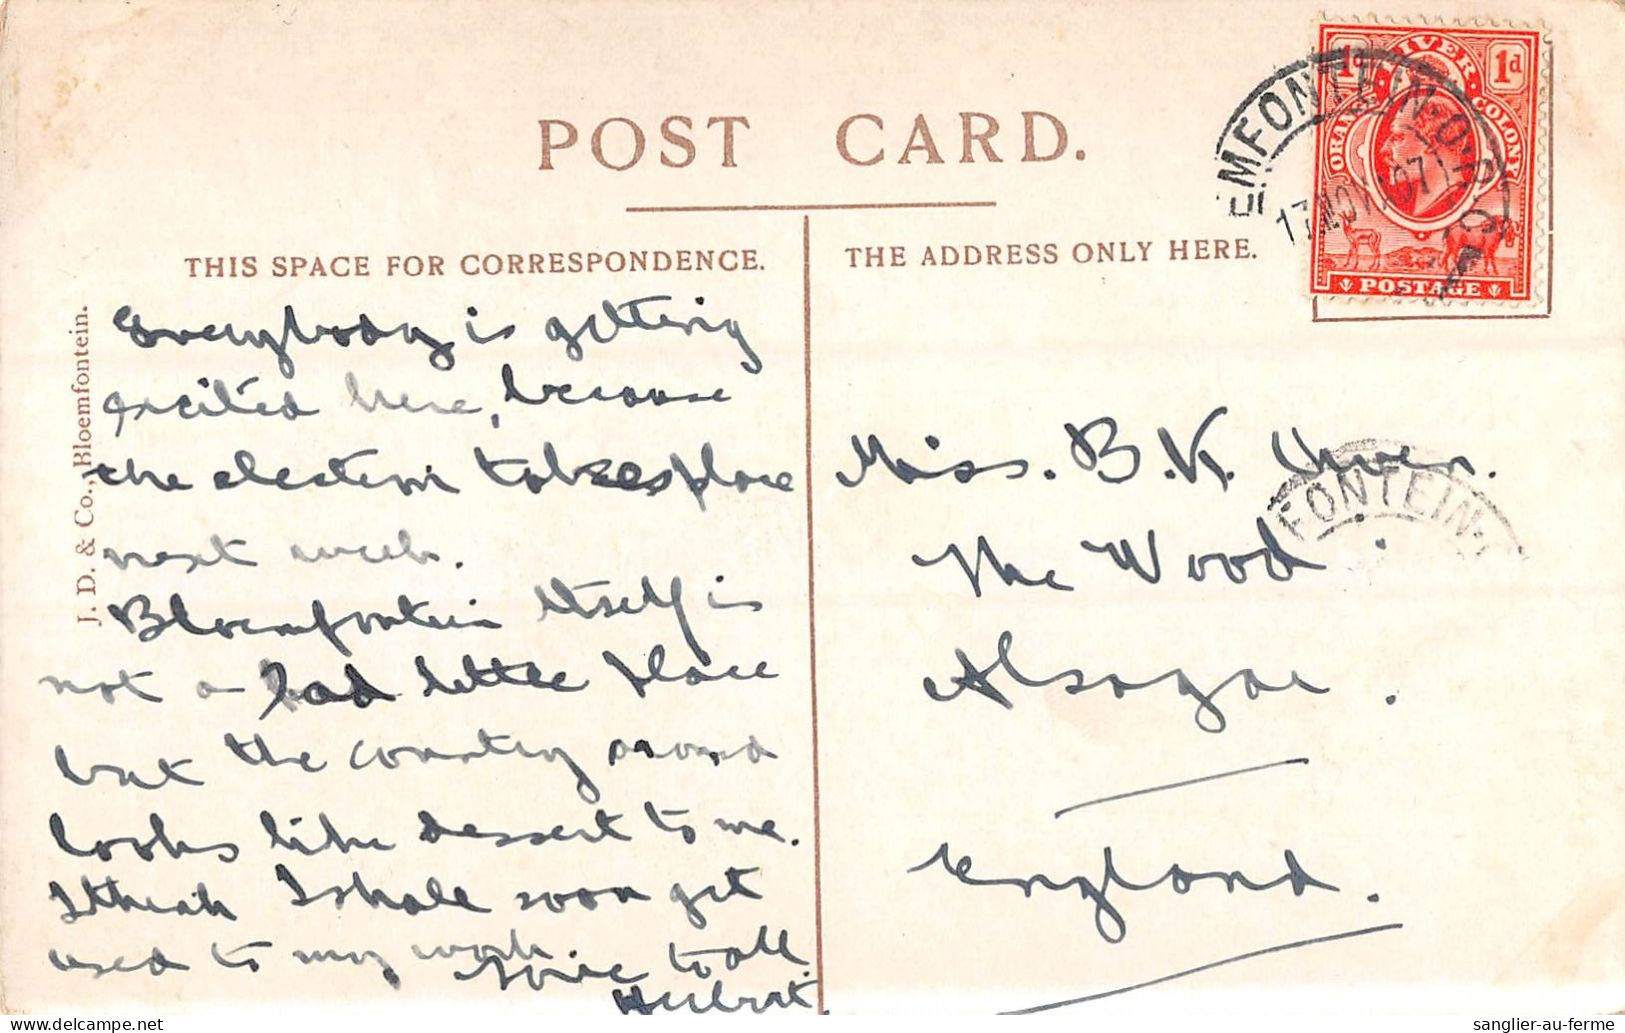 POST CARD.
THIS SPACE FOR CORRESPONDENCE.
THE ADDRESS ONLY HERE.
J. D. & Co., Bloemfontein.
Everybody is getting
excited here, because
the election takes place
next week.
Bloemfontein itself is
not a bad little place
but the country around
looks like dessert to me.
I think I shall soon get
used to my work.
to all
Herbert
Miss. B. K. Owen.
The Wood
Alsagar.
England.
ORANGE RIVER COLONY
1d 1d
POSTAGE
EMFONTEIN·O.R.C.
17 NOV 07
FONTEIN·
sanglier-au-ferme